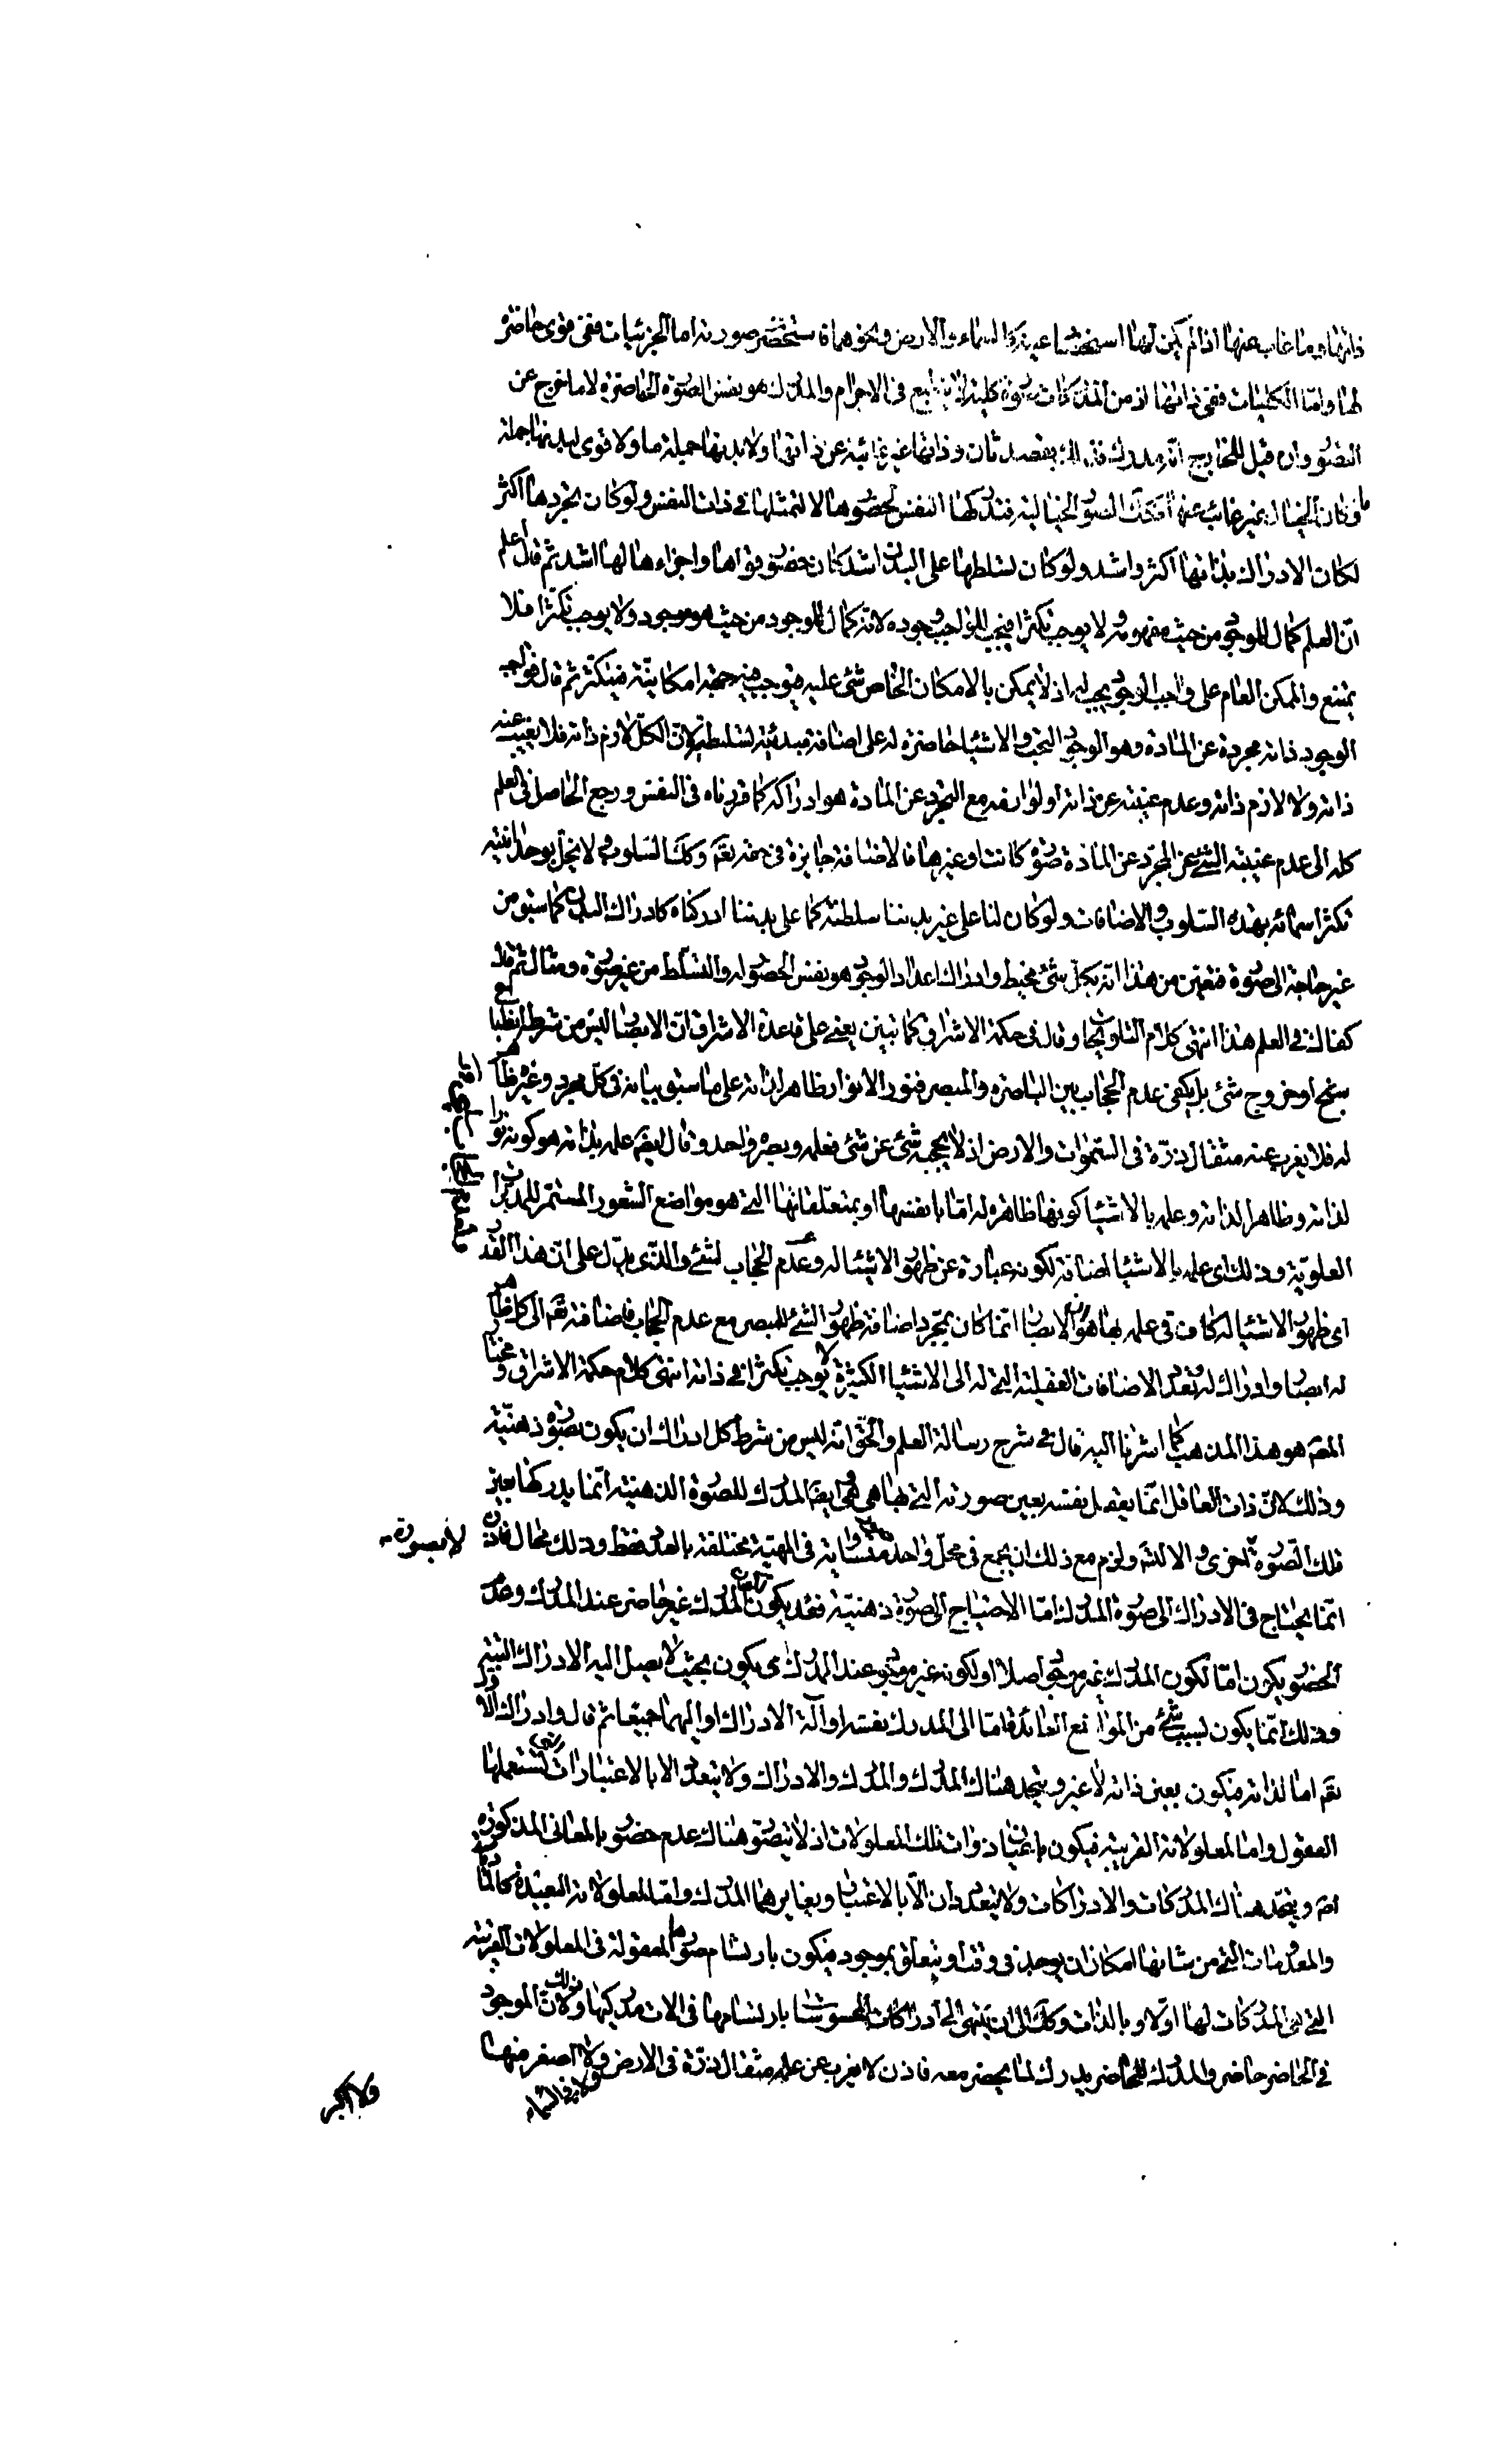 ذاتها وما غاب عنها اذا لم يكن لها استحضار عينه كالسماء والارض ونحوهما فاستحضر صورته اما الجزئيات ففى قوى حاضرة
لها واما الكليات ففى ذاتها اذ من المدركات كلية لا تنطبع فى الاجرام والمدرك هو نفس الصورة الحاضرة لا ما خرج عن
التصور وان قيل للخارج انه مدرك فذلك بقصد ثان وذاتها غير غائبة عن ذاتها ولا بدنها جملة ما ولا قوى لبدنها جملة
ما وكما ان الخيال غير غائب عنها فكذلك الصور الخيالية فتدركها النفس لحضورها لا لتمثلها فى ذات النفس ولو كان تجردها اكثر
لكان الادراك بذاتها اكثر واشد ولو كان تسلطها على البدن اشد كان حضور قواها واجزاءها لها اشد ثم قال اعلم
ان العلم كمال للوجود من حيث مفهومه ولا يوجب تكثرا فيجب للواجب وجوده لانه كمال للموجود من حيث هو موجود ولا يوجب تكثرا فلا
يمتنع والممكن العام على واجب الوجود يجب له اذ لا يمكن بالامكان الخاص شئ عليه فيوجب فيه جهة امكانية فيتكثر ثم قال فواجب
الوجود ذاته مجردة عن المادة وهو الوجود البحت والاشياء حاضرة له على اضافة مبدئية تسلطية لان الكل لازم ذاته فلا يغيب عنه
ذاته ولا لازم ذاته وعدم غيبته عن ذاته او لوازمه مع التجرد عن المادة هو ادراكه كما قررناه فى النفس ورجع الحاصل فى العلم
كله الى عدم غيبة الشئ عن المجرد عن المادة صورة كانت او غيرها فالاضافة جايزة فى حقه تعم وكذا السلوب ولا يخل بوحدانيته
تكثر اسمائه بهذه السلوب والاضافات ولو كان لنا على غير بدننا سلطنة كما على بدننا ادركناه كادراك البدن كما سبق من
غير حاجة الى صورة فتعين من هذا انه بكل شئ محيط وادراك اعداد الوجود هو نفس الحضور له والتسلط من غير صورة ومثال ثم قال
كفاك فى العلم هذا انتهى كلام التلويحات وقال فى حكمة الاشراق كما تبين يعنى على قاعدة الاشراق ان الابصار ليس من شرطه انطباع
شبح او خروج شئ بل يكفى عدم الحجاب بين الباصرة والمبصر فنور الانوار ظاهر لذاته على ما سبق بيانه فى كل مجرد وغيره ظاهر
له فلا يعزب عنه مثقال ذرة فى السموات والارض اذ لا يحجبه شئ عن شئ فعلمه وبصره واحد وقال ايضم علمه بذاته هو كونه نورا
لذاته وظاهرا لذاته وعلمه بالاشياء كونها ظاهرة له اما بانفسها او بمتعلقاتها التى هو مواضع الشعور المستمر للمدبرات
العلوية وذلك اى علمه بالاشياء اضافة لكونه عبارة عن ظهور الاشياء له وعدم الحجاب لشئ والذى يدل على ان هذا القدر
اى ظهور الاشياء له كاف فى علمه بها هو ان الابصار انما كان بمجرد اضافة ظهور الشئ للبصر مع عدم الحجاب فاضافته تعم الى كل ظاهر
له ابصار وادراك له وتعدد الاضافات العقلية التى له الى الاشياء الكثيرة لا يوجب تكثرا فى ذاته انتهى كلام حكمة الاشراق ومختار
المصم هو هذا المذهب كما اشرنا اليه قال فى شرح رسالة العلم والحق انه ليس من شرط كل ادراك ان يكون بصورة ذهنية
وذلك لان ذات العاقل انما يعقل نفسه بعين صورته التى بها هى هى ايضم المدرك للصورة الذهنية انما يدركها بعين
تلك الصورة لا بصورة اخرى والا لتسلسل ولزم مع ذلك ان يجمع فى محل واحد صور متساوية فى المهية مختلفة بالعدد فقط وذلك محال فاذن
انما يحتاج فى الادراك الى صورة المدرك اما الاحتياج الى صورة ذهنية فقد يكون المدرك غير حاضر عند المدرك وعدم
الحضور يكون اما لكون المدرك غير موجود اصلا او لكونه غير موجود عند المدرك اى يكون بحيث لا يصل اليه الادراك البتة
وذلك انما يكون لسبب شئ من الموانع العائدة اما الى المدرك نفسه او آلة الادراك او اليهما جميعا ثم قال وادراك الاول
تعم اما لذاته فيكون بعين ذاته لا غير ويتحد هناك المدرك والمدرك والادراك ولا يتعدد الا بالاعتبارات التى تستعملها
العقول واما لمعلولاته القريبة فيكون باعيان ذوات تلك المعلولات اذ لا يتصور هناك عدم حضور بالمعانى المذكورة
اصم ويتحد هناك المدركات والادراكات ولا يتعددان الا بالاعتبار ويغايرهما المدرك واما لمعلولاته البعيدة كالماديات
والمعدومات التى من شانها امكان ان يوجد فى وقت او يتعلق بموجود فيكون بارتسام صورها المعقولة فى المعلولات القريبة
التى هى المدركات لها اولا وبالذات وكذلك الى ان ينتهى الى ادراكات المحسوسات بارتسامها فى الات مدركيها وذلك لان الموجود
فى الحاضر حاضر والمدرك للحاضر يدرك لما يحضر معه فاذن لا يعزب عن علمه مثقال ذرة فى الارض ولا فى السماء ولا اصغر منها
ولا اكبر